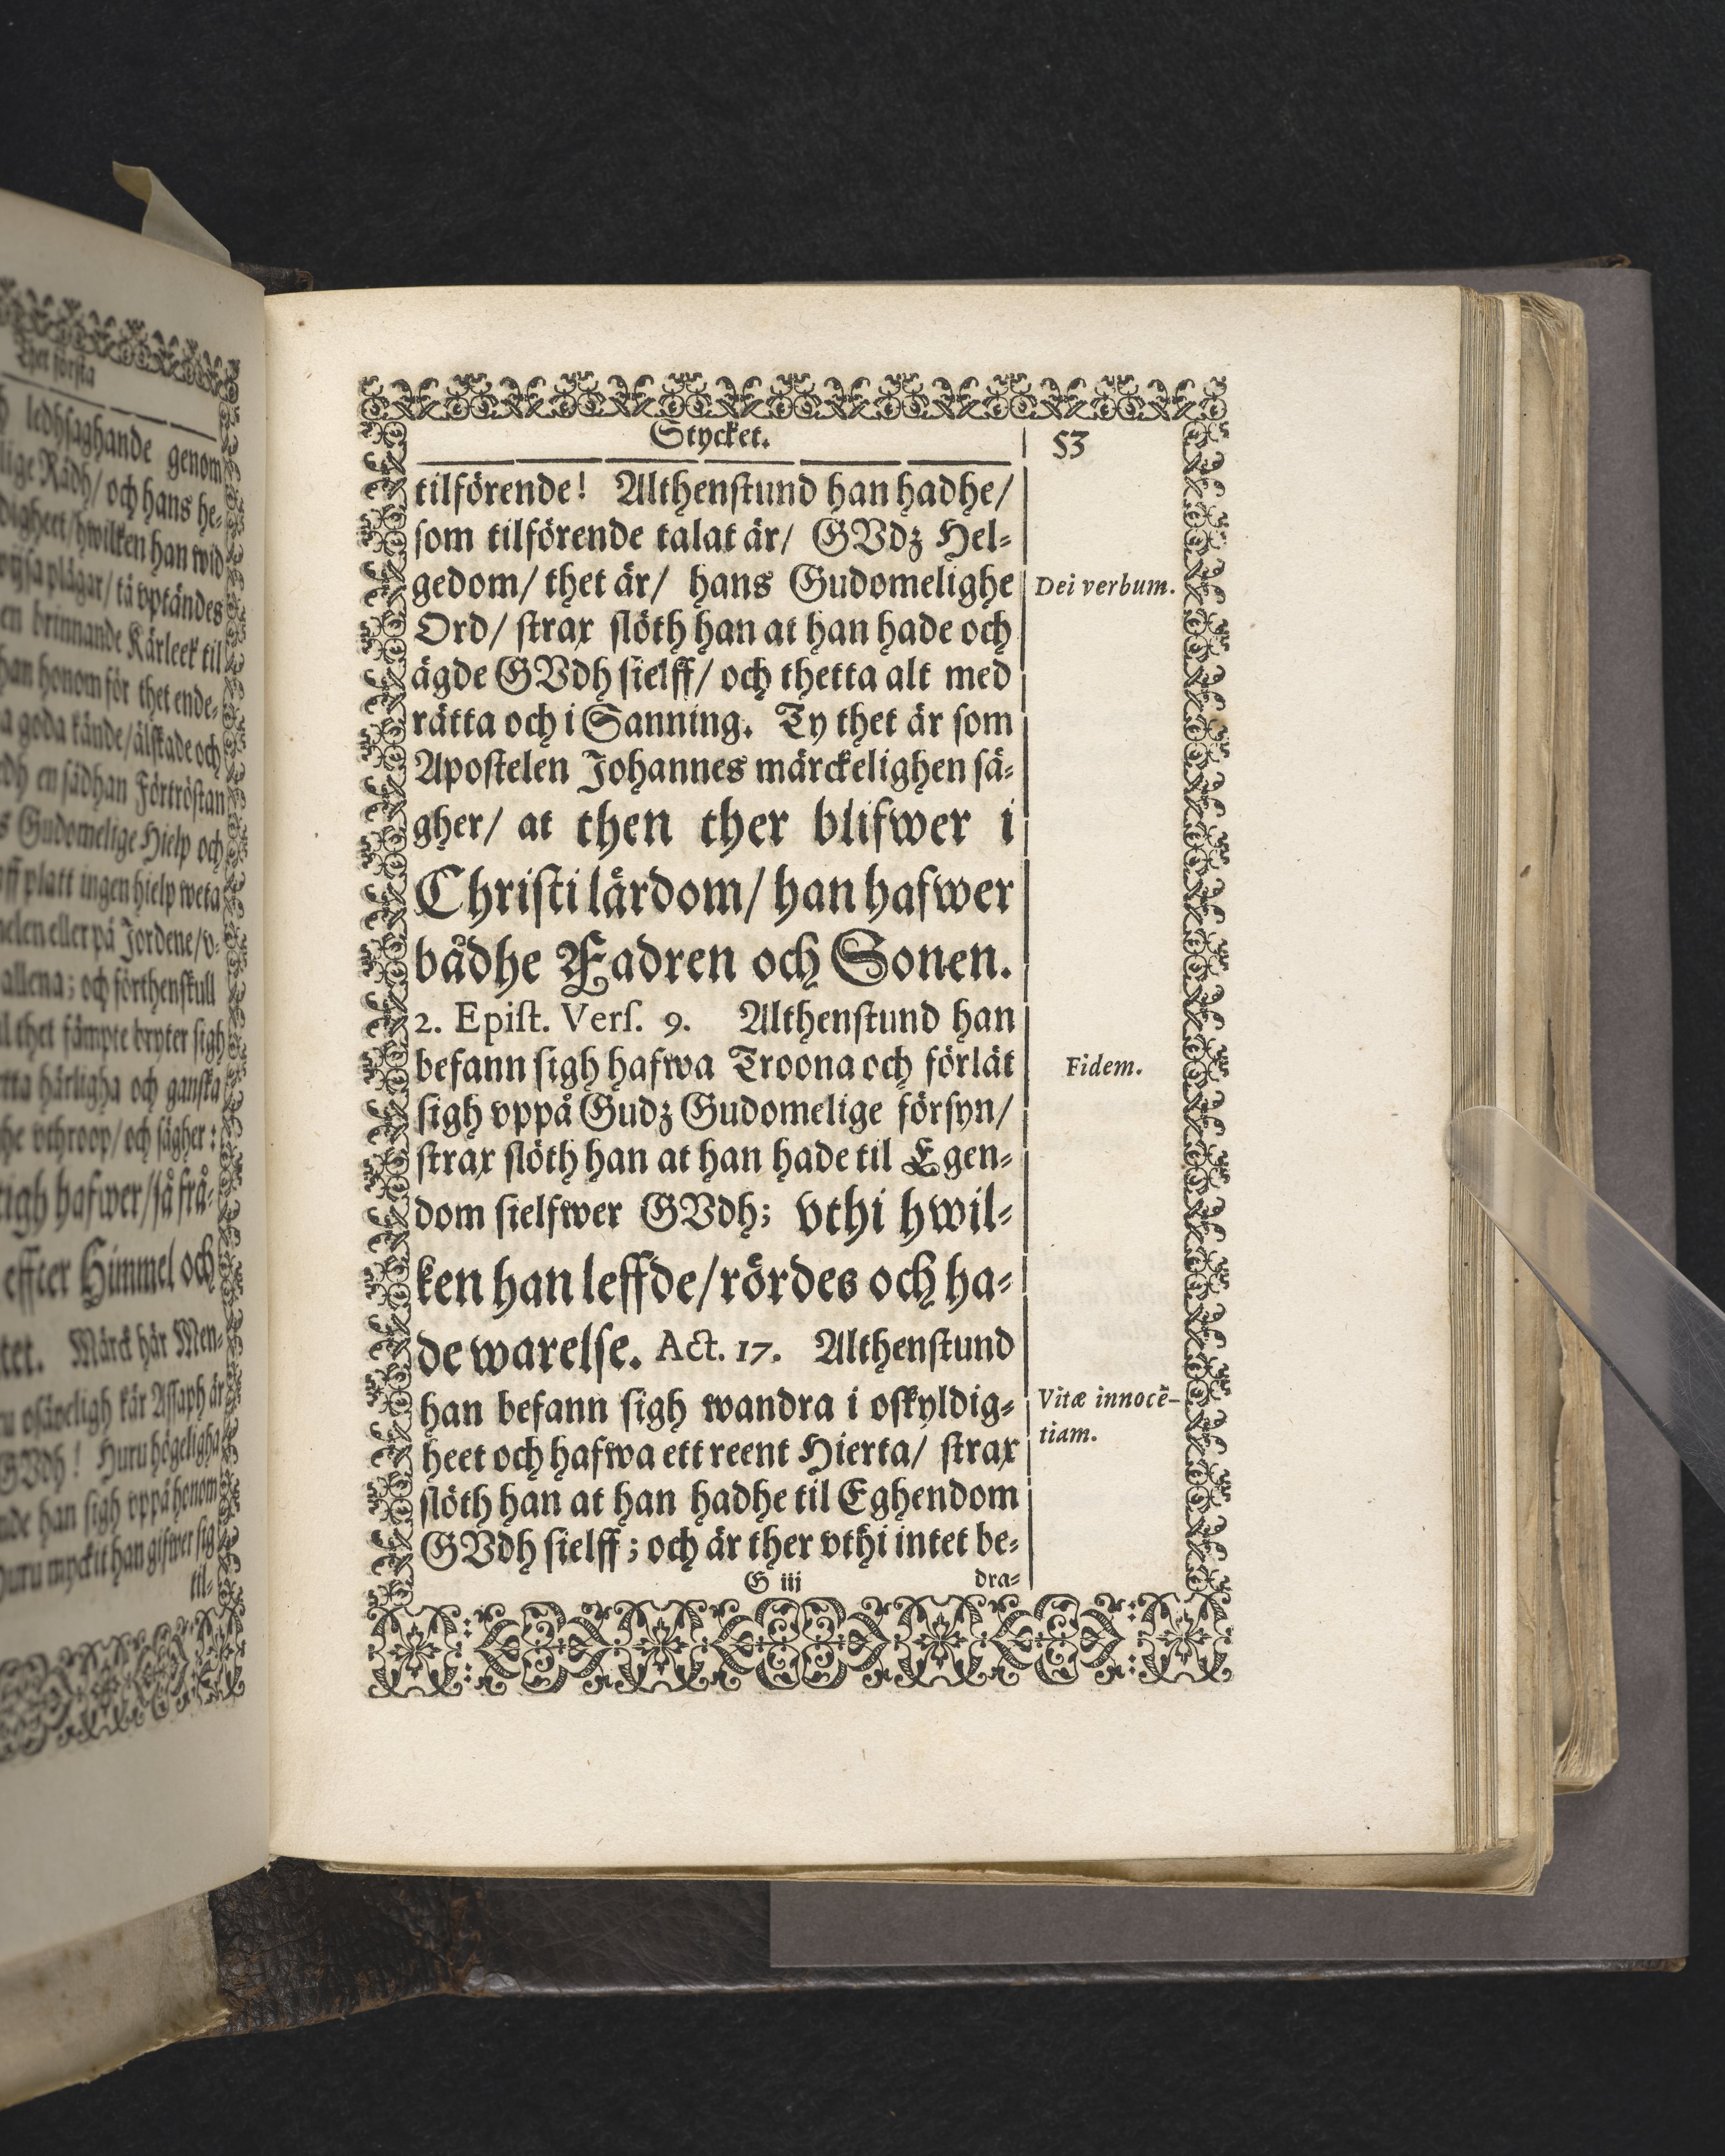 Thet första
ledhsaghande genom
lige Rådh/ och hans he-
digheet/ hwilken han wid
wijsa plägar/ tå vptändes
en brinnande Kärleek til
han honom för thet ende-
a goda kände/ älskade och
en sådhan Förtröstan
Gudomelige Hielp och
platt ingen hielp weta
eller på Jordene/ v-
allena; och förthenskull
thet sämpte bryter sigh
härligha och ganska
vthroop/ och sägher:
tigh hafwer/ så frå-
effter Himmel och
Märck här Men-
osäyeligh kär Assaph är
GVdh! Huru högeligha
han sigh vppå honom
Huru myckit han gifwer sig
til-
Stycket.
53
tilförende! Althenstund han hadhe/
som tilförende talat är/ GVdz Hel-
gedom/ thet är/ hans Gudomelighe
Dei verbum.
Ord/ strax slöth han at han hade och
ägde GVdh sielff/ och thetta alt med
rätta och i Sanning. Ty thet är som
Apostelen Johannes märckelighen sä-
gher/ at then ther blifwer i
Christi lärdom/ han hafwer
bådhe Fadren och Sonen.
2. Epist. Vers. 9. Althenstund han
befann sigh hafwa Troona och förlät
Fidem.
sigh vppå Gudz Gudomelige försyn/
strax slöth han at han hade til Egen-
dom sielfwer GVdh; vthi hwil-
ken han leffde/ rördes och ha-
de warelse. Act. 17. Althenstund
han befann sigh wandra i oskyldig-
Vitæ innocẽ-
heet och hafwa ett reent Hierta/ strax
tiam.
slöth han at han hadhe til Eghendom
GVdh sielff; och är ther vthi intet be-
G iij
dra-